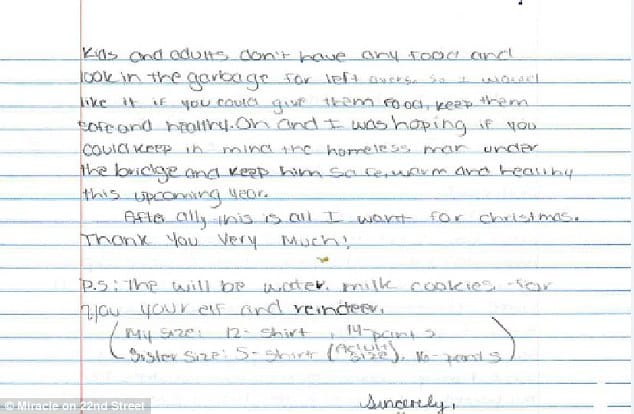 Kids and adults don't have any food and
look in the garbage for left overs. so I would
like it if you could give them food, keep them
safe and healthy. Oh and I was hoping if you
could keep in mind the homeless man under
the bridge and keep him safe, warm and healthy
this upcoming year.
After ally this is all I want for christmas.
Thank You Very Much!
P.S: The will be water, milk cookies for
you your elf and reindeer.
(My size: 12- shirt, 14-pants
Sister Size: S- shirt (Adult size), 16- pants)
Sincerely,
© Miracle on 22nd Street